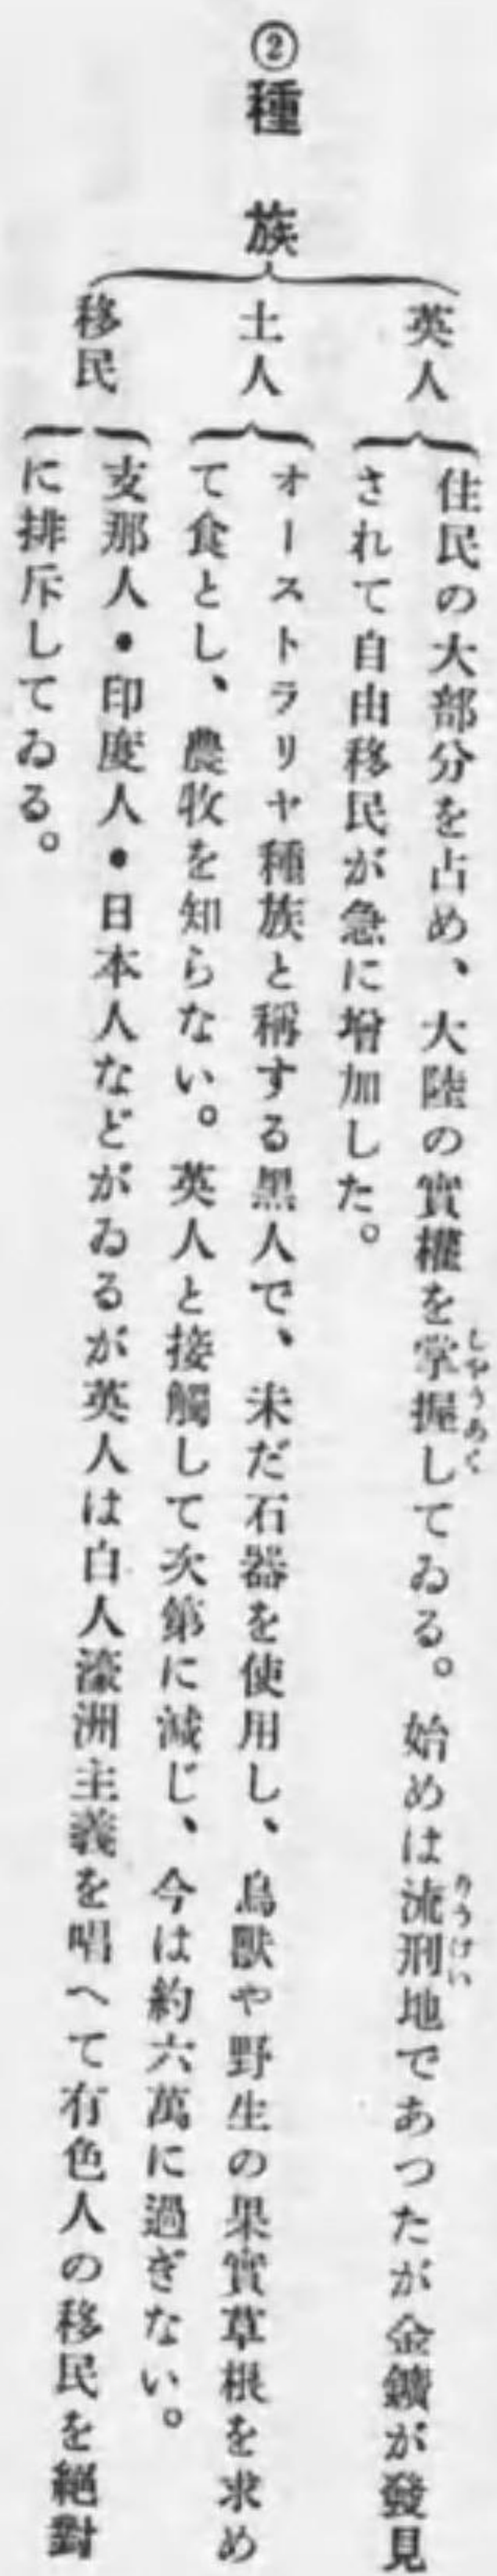 ②種族
英人
住民の大部分を占め、大陸の實權を掌握してゐる。始めは流刑地であつたが金鑛が發見
しやうあく
りうけい
されて自由移民が急に增加した。
土人
オーストラリヤ種族と稱する黑人で、未だ石器を使用し、鳥獸や野生の果實草根を求め
て食とし、農牧を知らない。英人と接觸して次第に減じ、今は約六萬に過ぎない。
移民
支那人・印度人・日本人などがゐるが英人は白人濠洲主義を唱へて有色人の移民を絕對
に排斥してゐる。